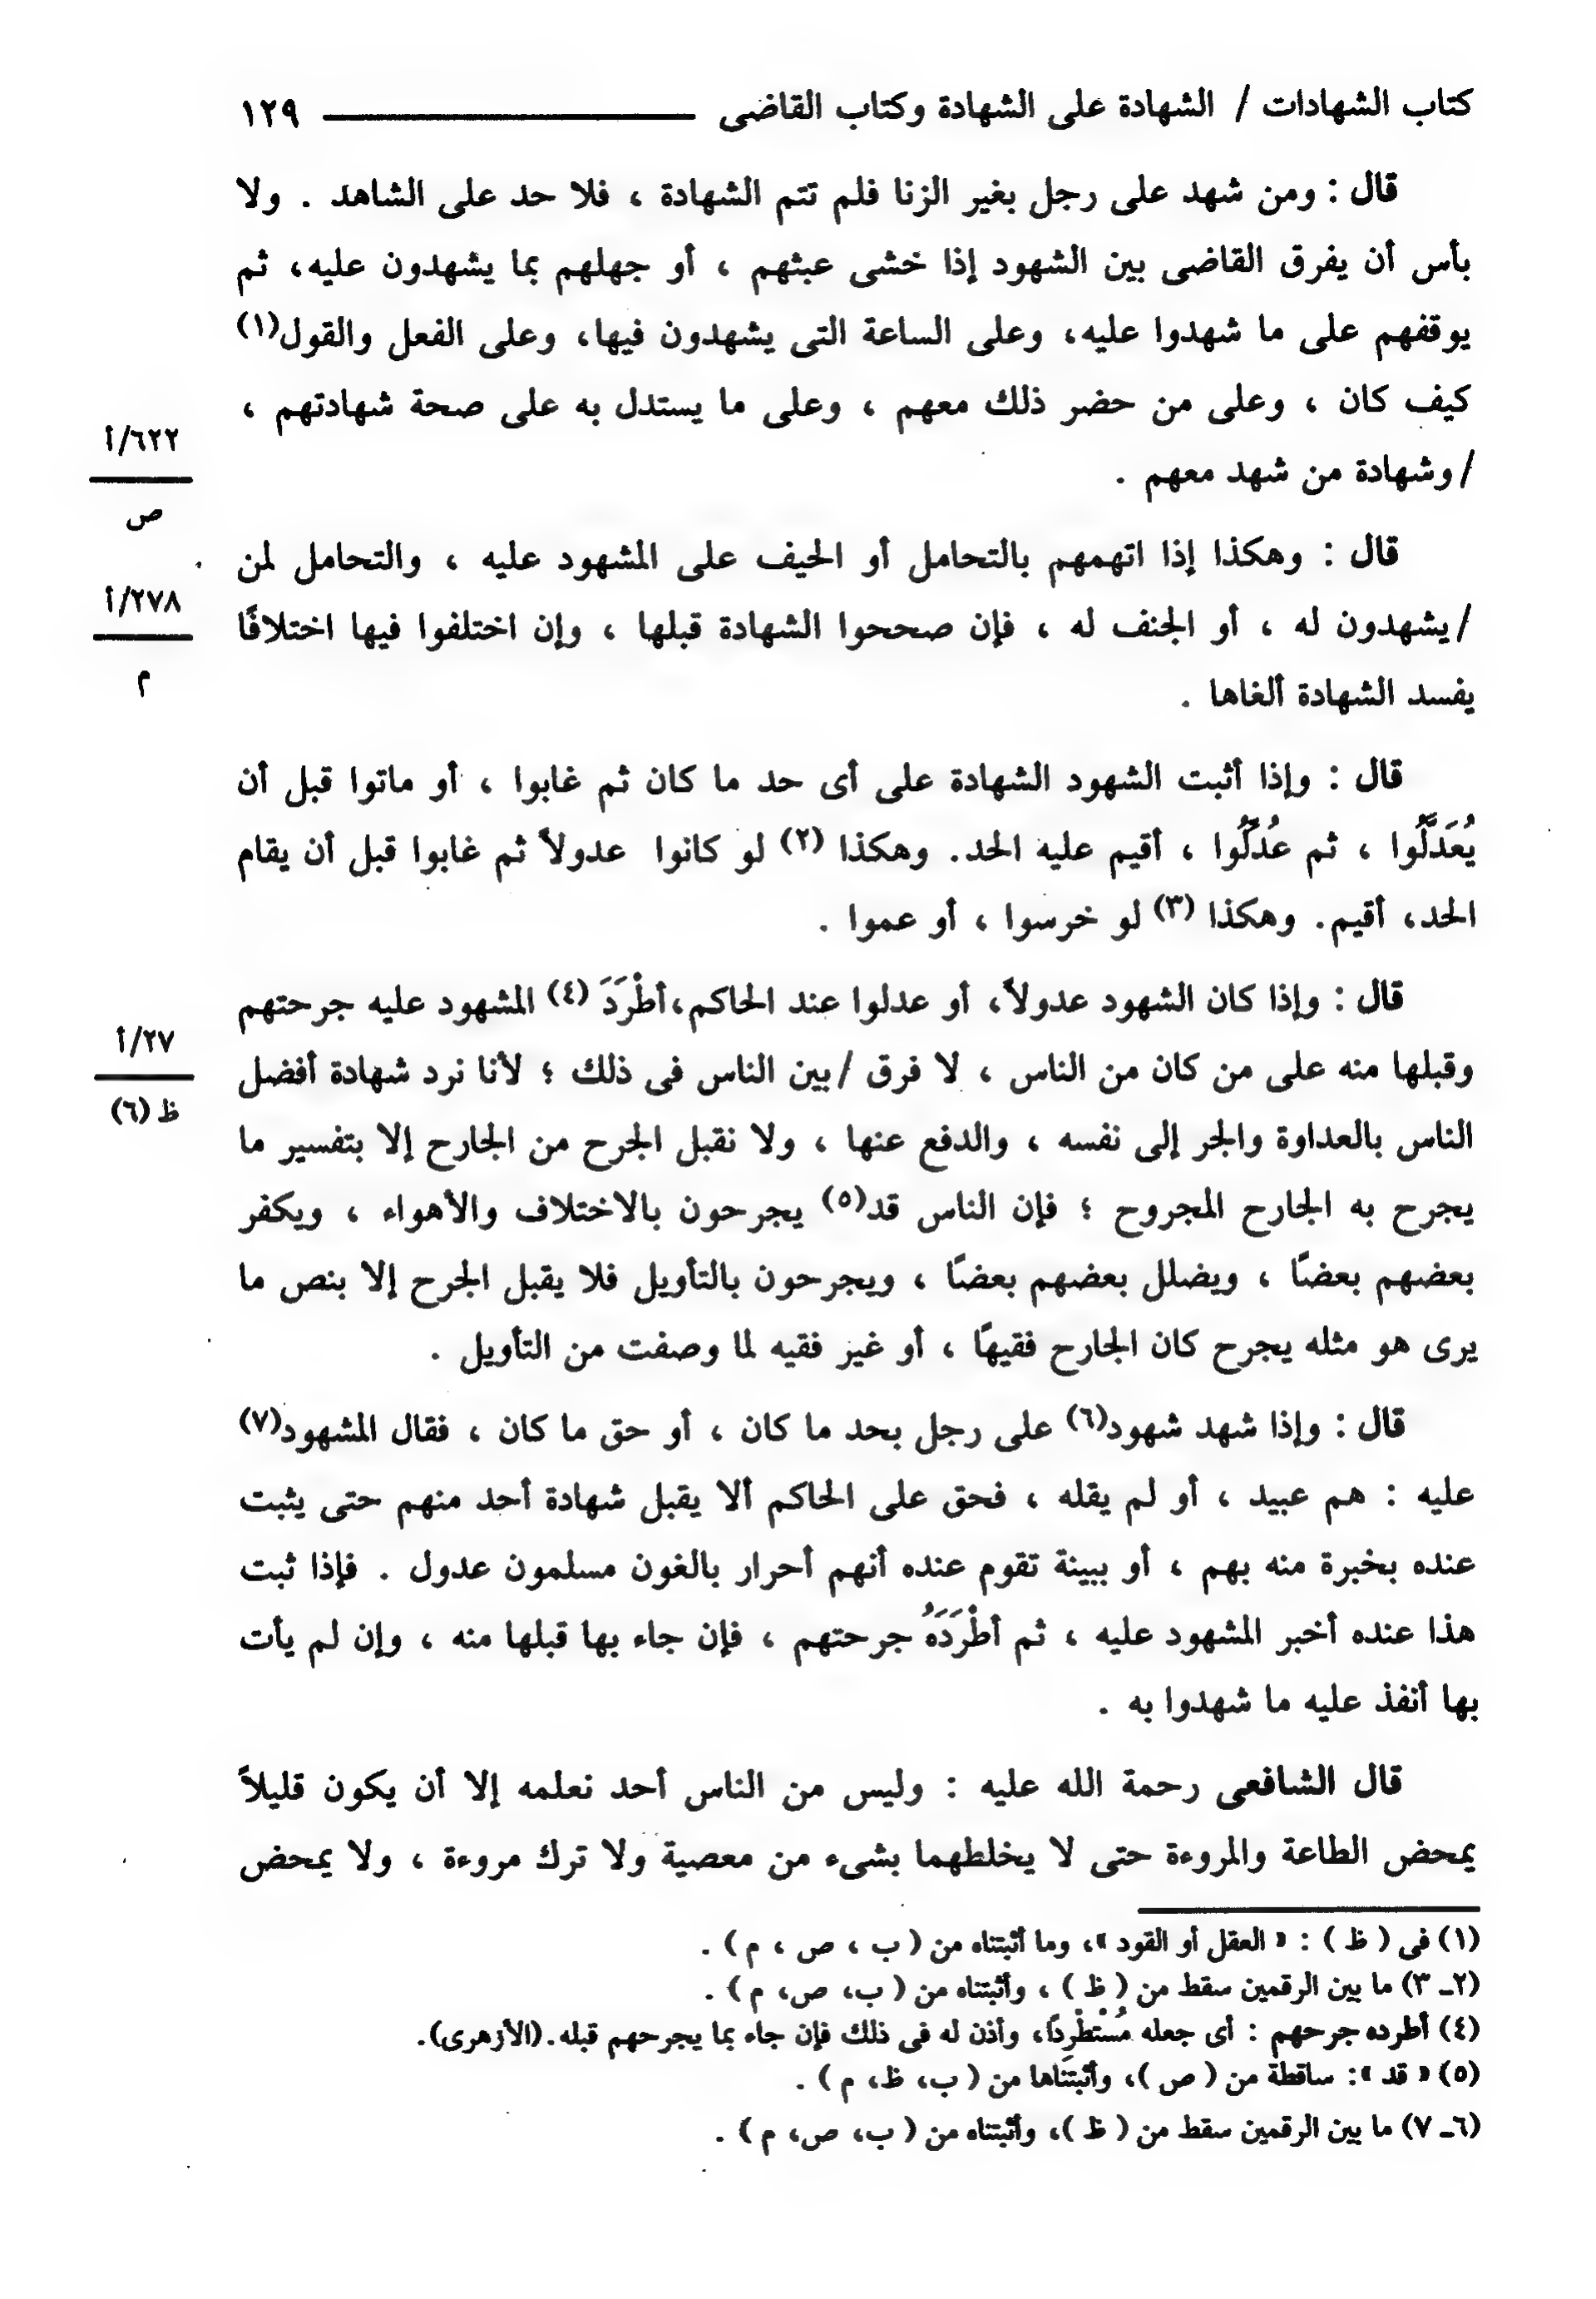 كتاب الشهادات / الشهادة على الشهادة وكتاب القاضى ١٢٩
قال : ومن شهد على رجل بغير الزنا فلم تتم الشهادة ، فلا حد على الشاهد . ولا
بأس أن يفرق القاضى بين الشهود إذا خشى عبثهم ، أو جهلهم بما يشهدون عليه، ثم
يوقفهم على ما شهدوا عليه، وعلى الساعة التى يشهدون فيها، وعلى الفعل والقول(١)
كيف كان ، وعلى من حضر ذلك معهم ، وعلى ما يستدل به على صحة شهادتهم ،
٦٢٢/أ
ص
/وشهادة من شهد معهم .
قال : وهكذا إذا اتهمهم بالتحامل أو الحيف على المشهود عليه ، والتحامل لمن
٢٧٨/أ
م
/يشهدون له ، أو الجنف له ، فإن صححوا الشهادة قبلها ، وإن اختلفوا فيها اختلافًا
يفسد الشهادة ألغاها .
قال : وإذا أثبت الشهود الشهادة على أى حد ما كان ثم غابوا ، أو ماتوا قبل أن
يُعَدَّلُوا ، ثم عُدِّلُوا ، أقيم عليه الحد. وهكذا (٢) لو كانوا عدولاً ثم غابوا قبل أن يقام
الحد، أقيم. وهكذا (٣) لو خرسوا ، أو عموا .
قال : وإذا كان الشهود عدولاً، أو عدلوا عند الحاكم،أطْرَدَ (٤) المشهود عليه جرحتهم
٢٧/أ
ظ (٦)
وقبلها منه على من كان من الناس ، لا فرق /بين الناس فى ذلك ؛ لأنا نرد شهادة أفضل
الناس بالعداوة والجر إلى نفسه ، والدفع عنها ، ولا نقبل الجرح من الجارح إلا بتفسير ما
يجرح به الجارح المجروح ؛ فإن الناس قد(٥) يجرحون بالاختلاف والأهواء ، ويكفر
بعضهم بعضًا ، ويضلل بعضهم بعضًا ، ويجرحون بالتأويل فلا يقبل الجرح إلا بنص ما
يرى هو مثله يجرح كان الجارح فقيهًا ، أو غير فقيه لما وصفت من التأويل .
قال : وإذا شهد شهود(٦) على رجل بحد ما كان ، أو حق ما كان ، فقال المشهود(٧)
عليه : هم عبيد ، أو لم يقله ، فحق على الحاكم ألا يقبل شهادة أحد منهم حتى يثبت
عنده بخبرة منه بهم ، أو ببينة تقوم عنده أنهم أحرار بالغون مسلمون عدول . فإذا ثبت
هذا عنده أخبر المشهود عليه ، ثم أطْرَدَهُ جرحتهم ، فإن جاء بها قبلها منه ، وإن لم يأت
بها أنفذ عليه ما شهدوا به .
قال الشافعى رحمة الله عليه : وليس من الناس أحد نعلمه إلا أن يكون قليلاً
يمحض الطاعة والمروءة حتى لا يخلطهما بشىء من معصية ولا ترك مروءة ، ولا يمحض
(١) فى ( ظ ) : « العقل أو القود »، وما أثبتناه من ( ب ، ص ، م ) .
(٢ـ ٣) ما بين الرقمين سقط من ( ظ ) ، وأثبتناه من ( ب، ص، م ) .
(٤) أطرده جرحهم : أى جعله مُسْتَطْرِدًا، وأذن له فى ذلك فإن جاء بما يجرحهم قبله.(الأزهرى).
(٥) « قد »: ساقطة من ( ص )، وأثبتناها من ( ب، ظ، م ) .
(٦ـ ٧) ما بين الرقمين سقط من ( ظ )، وأثبتناه من ( ب، ص، م ) .